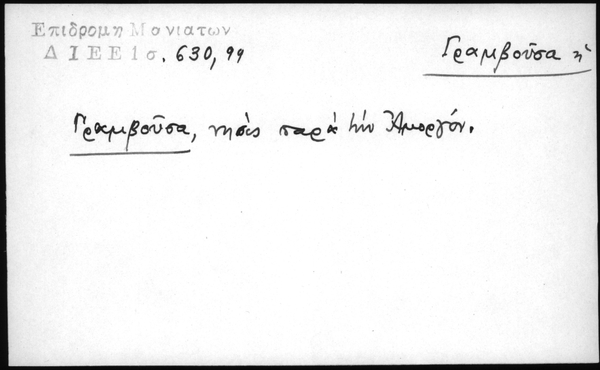 Επιδρομη Μανιατων
Δ Ι Ε Ε 1 σ. 630, 99
Γραμβοῦσα ἡ
Γραμβοῦσα, νησὶς παρὰ τὴν Ἀμοργόν.